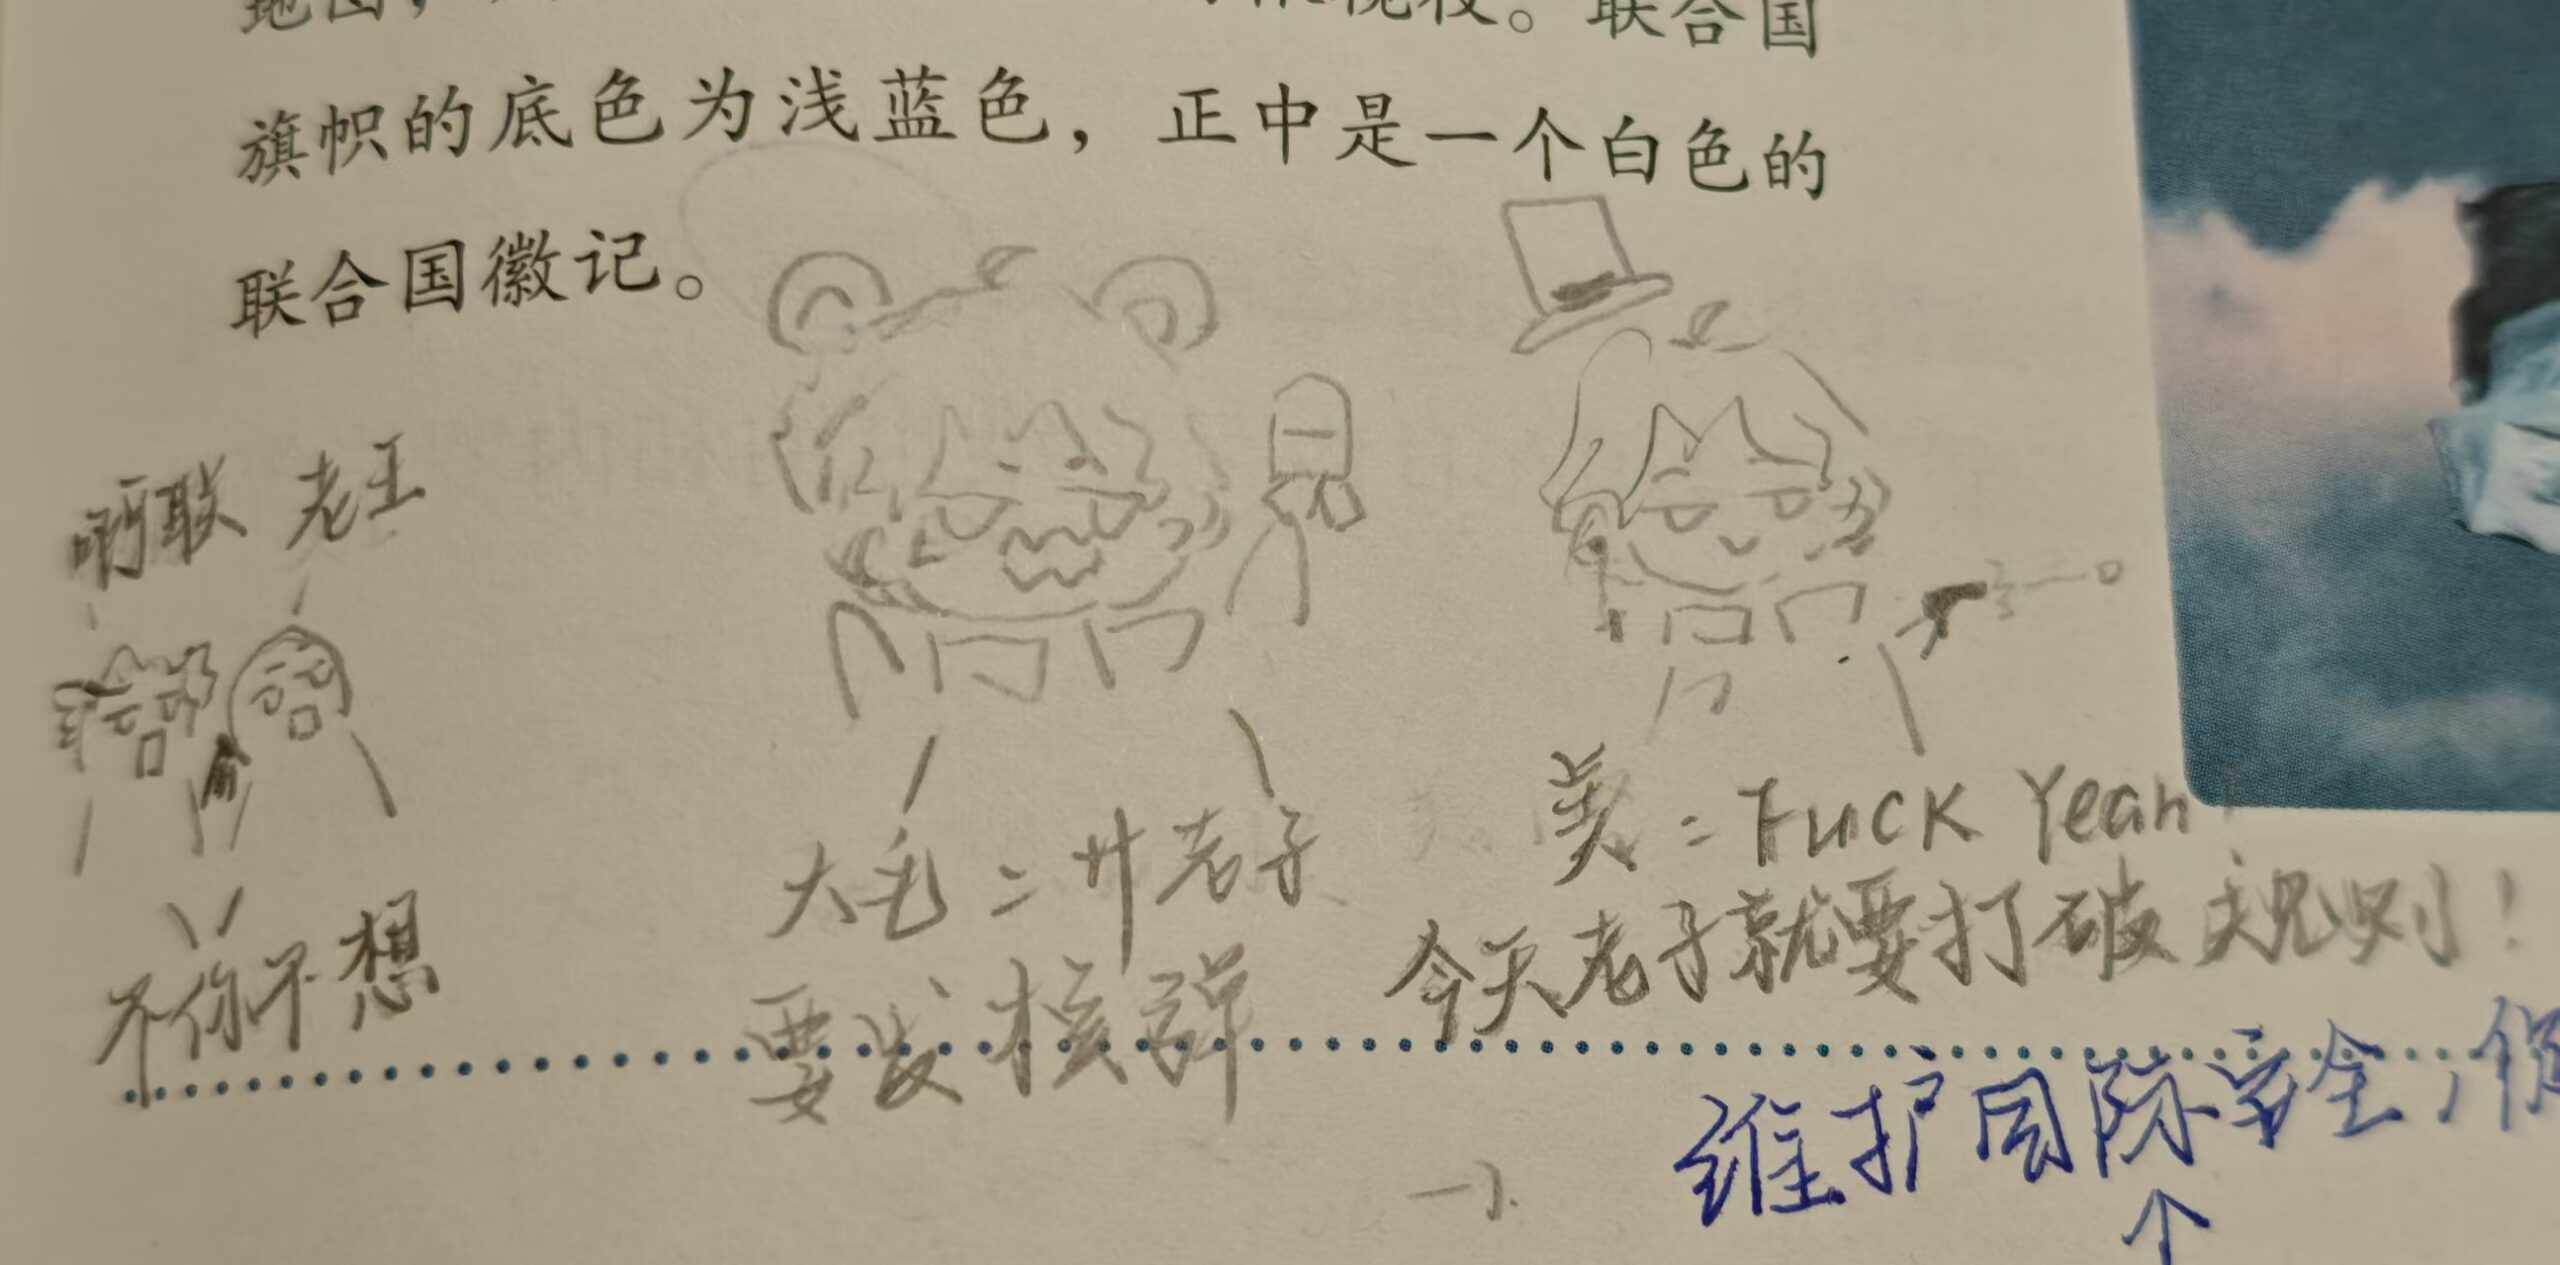 地图，
桃枝。联合国
旗帜的底色为浅蓝色，正中是一个白色的
联合国徽记。
啊联 老王
不你不想
大毛：艹老子
要发核弹
美：Fuck Yeah！
今天老子就要打破规则！
维护国际安全，